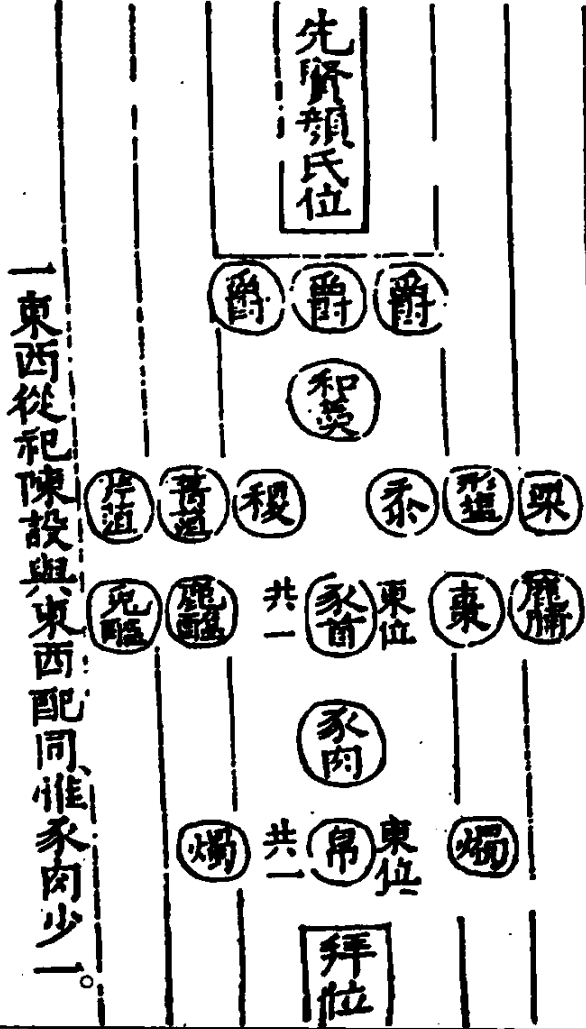 先賢顏氏位
爵 爵 爵
和羹
栗 形鹽 黍 稷 菁菹 芹菹
鹿脯 棗 東位 豕首 共一 鹿醢 兔醢
豕肉
燭 東位 帛 共一 燭
拜位
一東西從祀陳設與東西配同、惟豕肉少一。